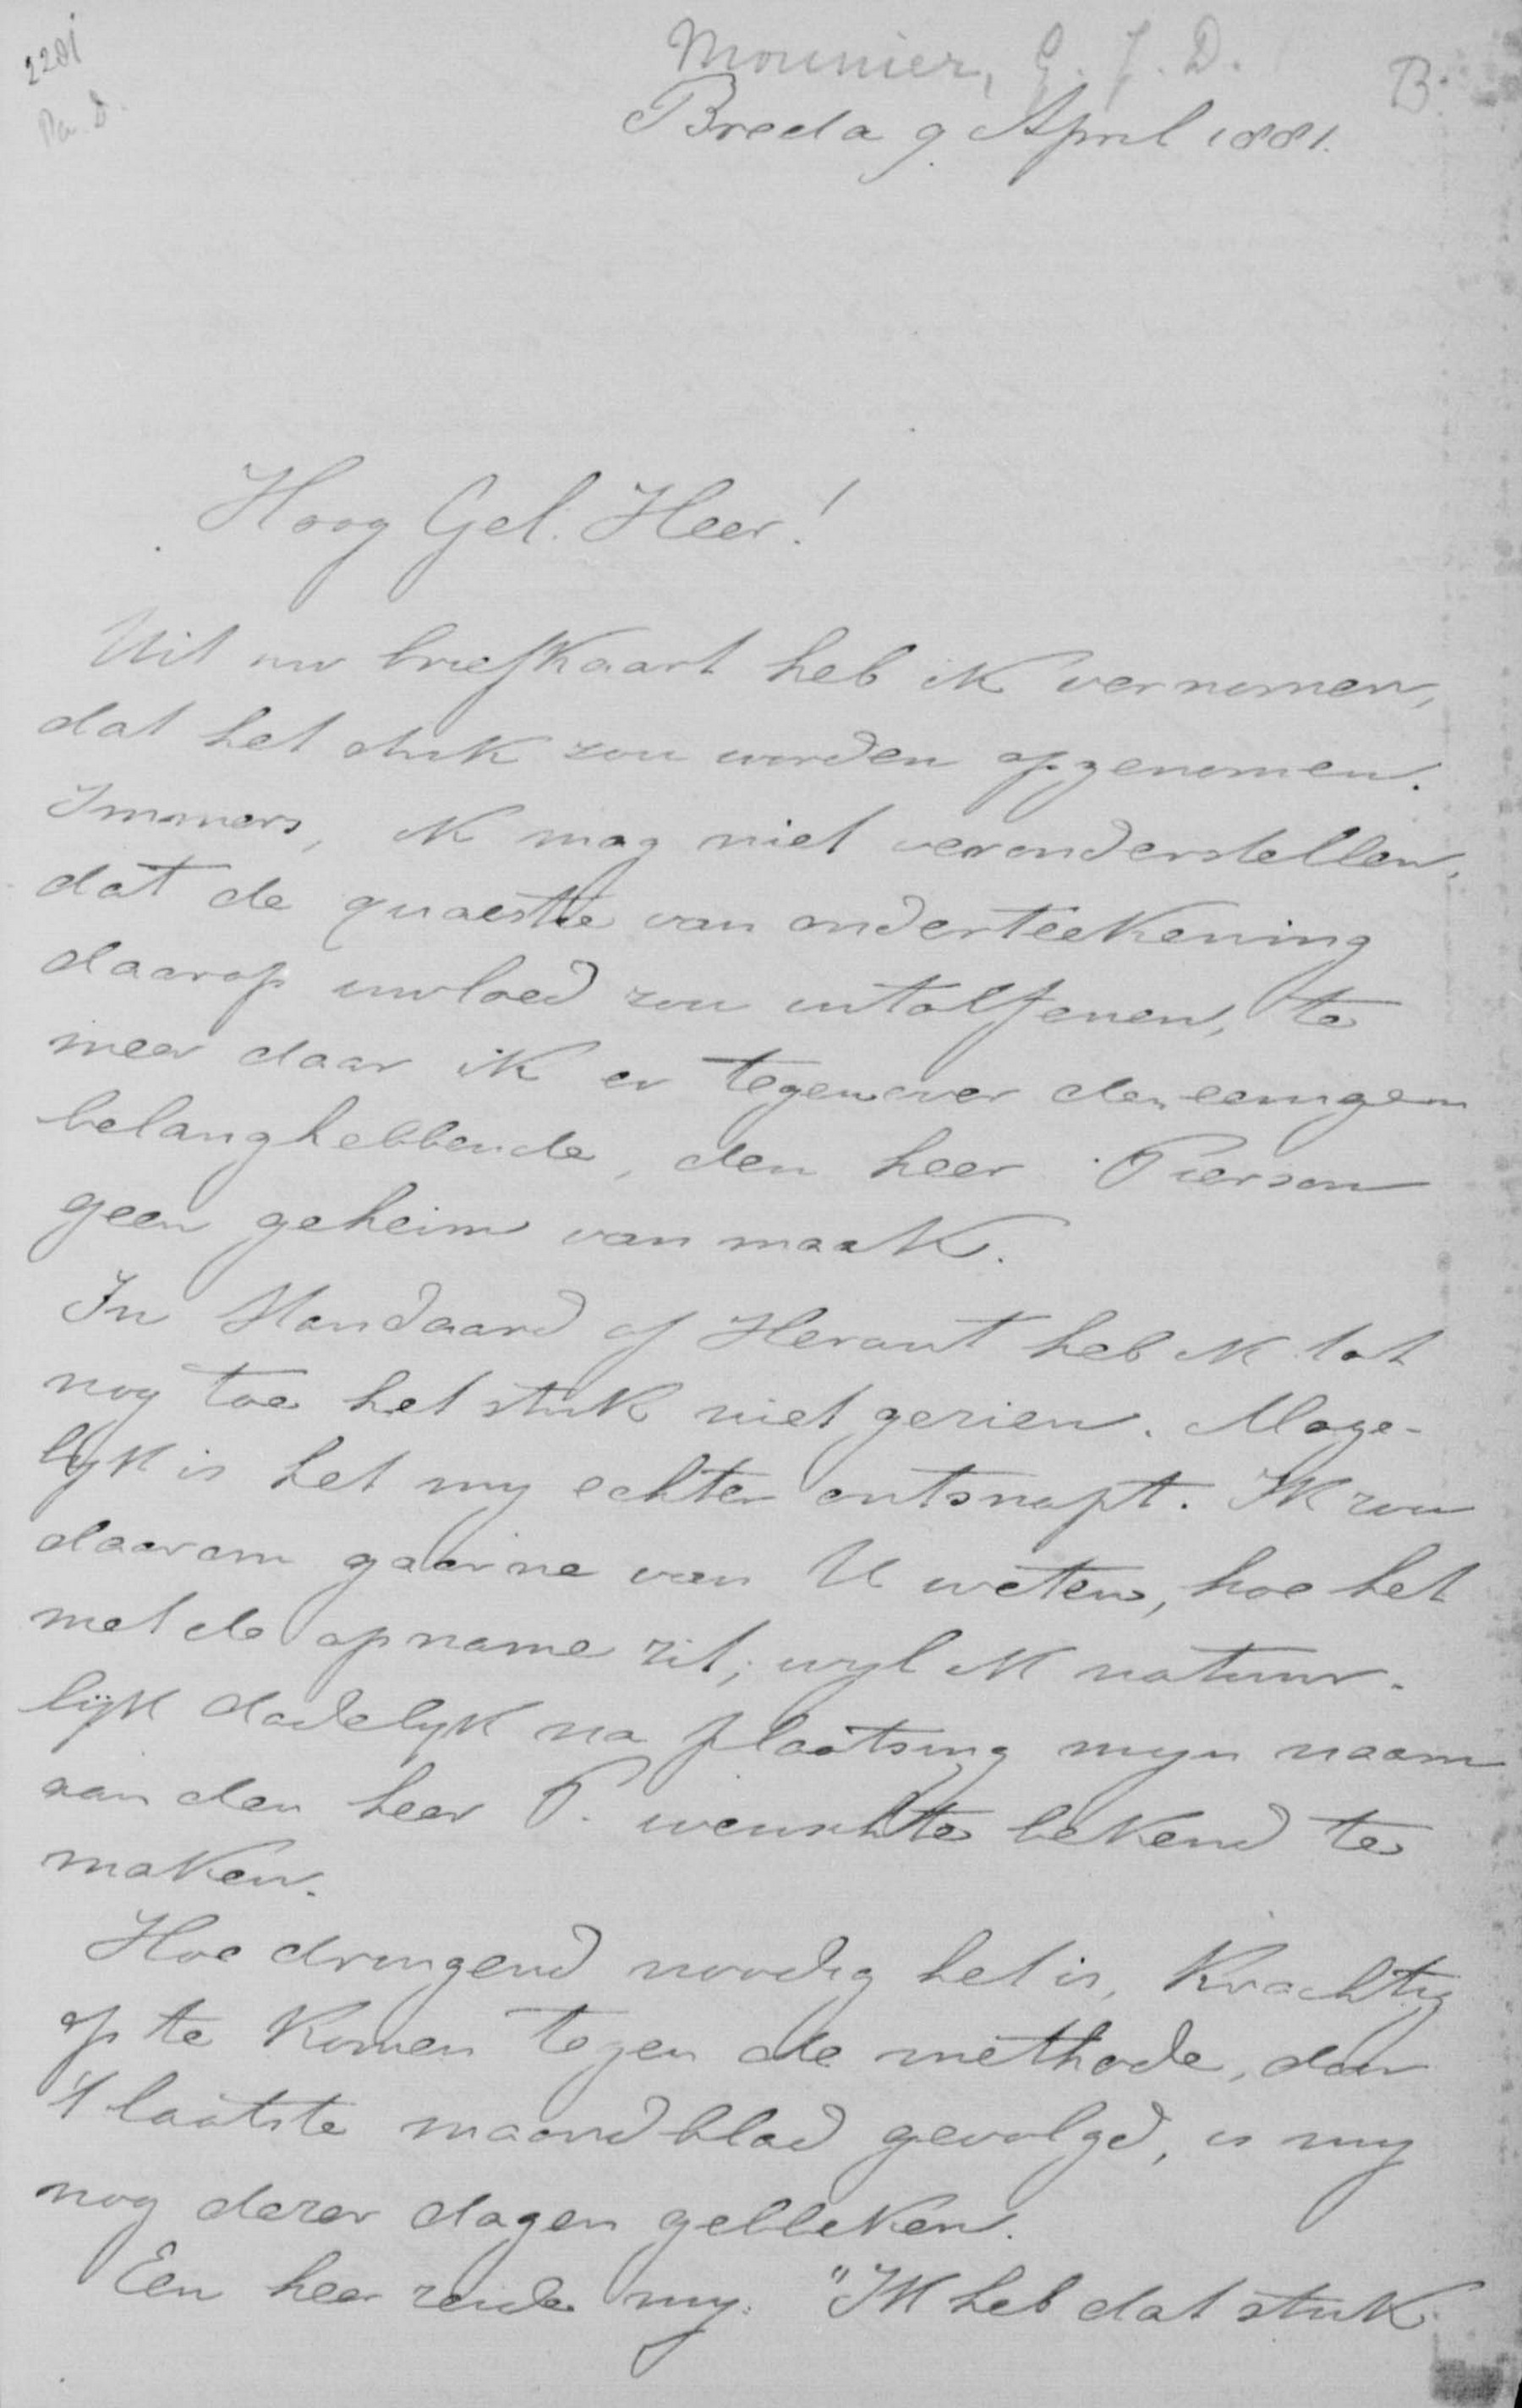 2201
Mounier, G. J. D.
B.
Breda 9 April 1881.
Hoog Gel. Heer!
Uit uw briefkaart heb ik vernomen,
dat het stuk zou worden opgenomen.
Immers, ik mag niet veronderstellen,
dat de quaestie van onderteekening
daarop invloed zou uitoefenen, te
meer daar ik er tegenover den eenigen
belanghebbende, den heer Pierson
geen geheim van maak.
In Standaard of Heraut heb ik tot
nog toe het stuk niet gezien. Moge-
lijk is het my echter ontsnapt. Ik zou
daarom gaarne van U weten, hoe het
met de opname zit; wyl ik natuur-
lijk dadelyk na plaatsing myn naam
aan den heer P. wenschte bekend te
maken.
Hoe dringend noodig het is, krachtig
op te komen tegen de methode, door
't laatste maandblad gevolgd, is my
nog dezer dagen gebleken.
Een heer zeide my: "Ik heb dat stuk